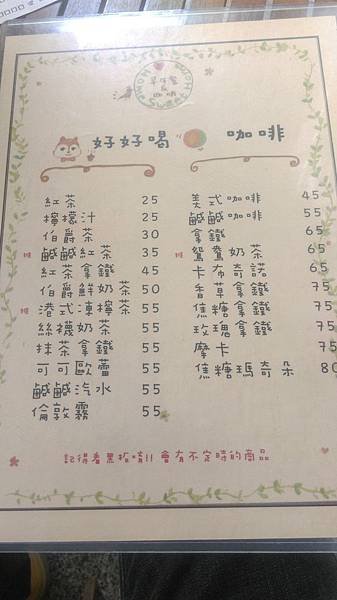 好好喝
紅茶 25
檸檬汁 25
伯爵茶 30
鹹鹹紅茶 35
紅茶拿鐵 45
伯爵鮮奶茶 50
港式凍檸茶 50
絲襪奶茶 55
抹茶拿鐵 55
可可歐蕾 55
鹹鹹汽水 55
倫敦霧 55
咖啡
美式咖啡 45
鹹鹹咖啡 55
拿鐵 65
鴛鴦奶茶 65
卡布奇諾 65
香草拿鐵 75
焦糖拿鐵 75
玫瑰拿鐵 75
摩卡 75
焦糖瑪奇朵 80
記得看黑板唷!! 會有不定時的商品